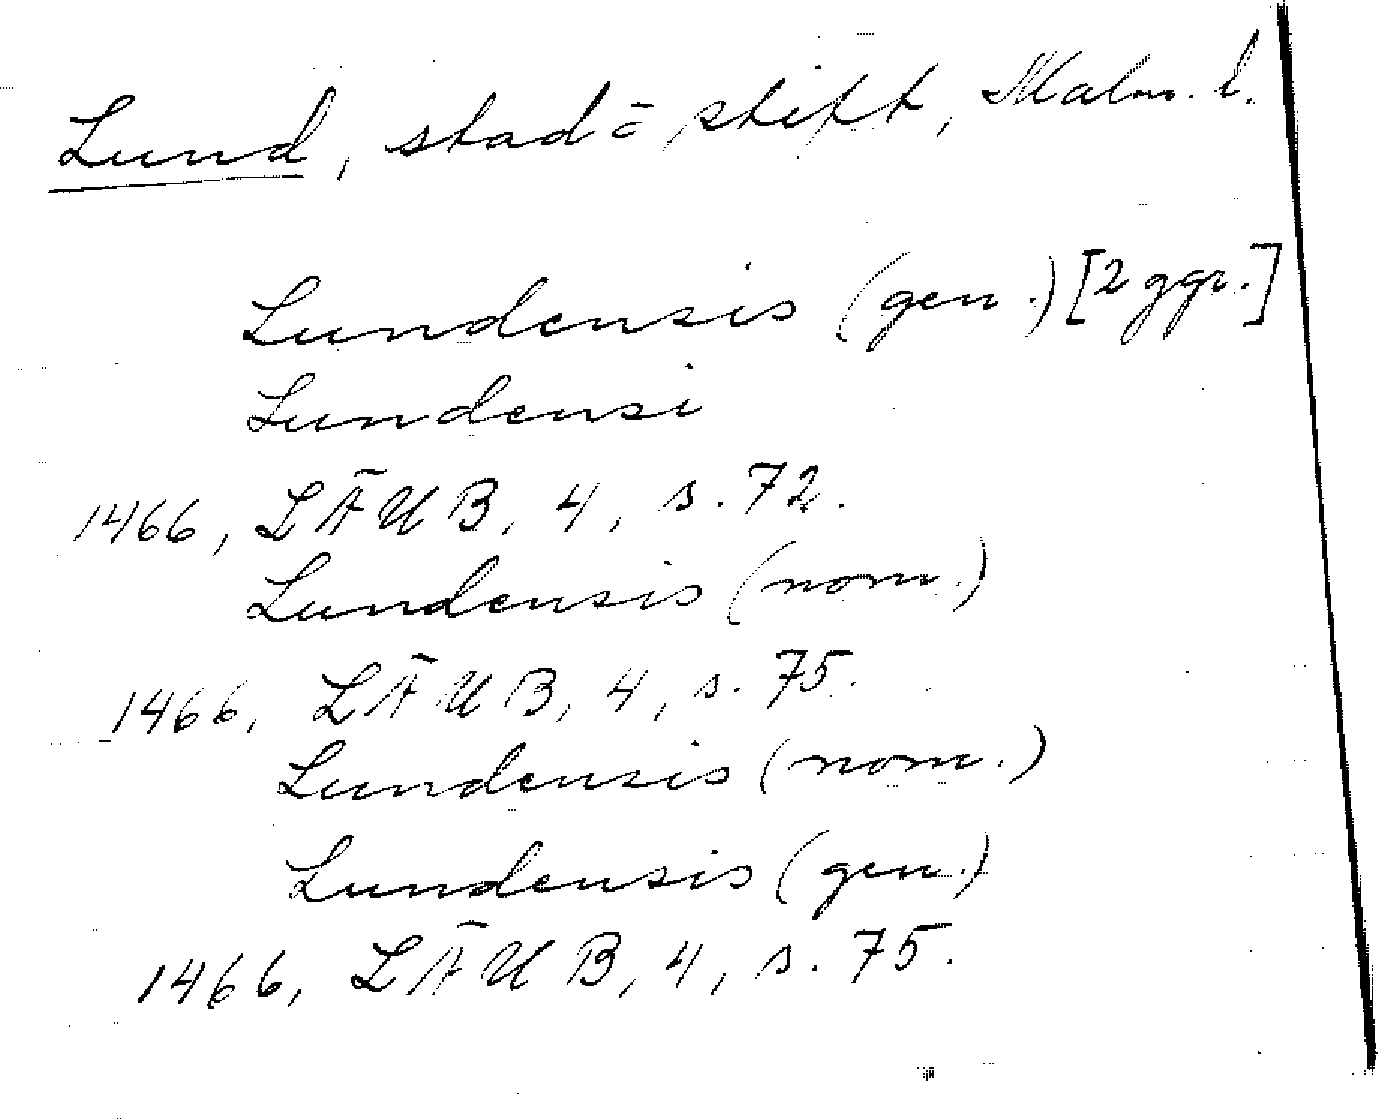 Lund, stad o stift, Malm. l.
Lundensis (gen.) [2 ggr.]
Lundensi
1466, LÄUB, 4, s. 72.
Lundensis (nom.)
1466, LÄUB, 4, s. 75.
Lundensis (nom.)
Lundensis (gen.)
1466, LÄUB, 4, s. 75.